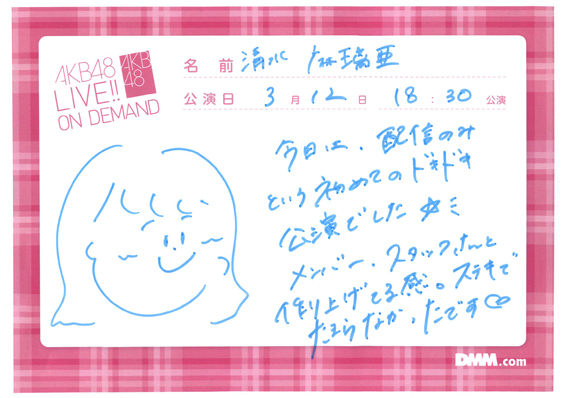 AKB48
LIVE!!
ON DEMAND
AKB
48
名前 清水 麻璃亜
公演日 3月12日 18:30公演
今日は、配信のみ
という初めてのドキドキ
公演でした☆ミ
メンバー、スタッフさんと
作り上げてる感。ステキで
たまらなかったです♡
DMM.com